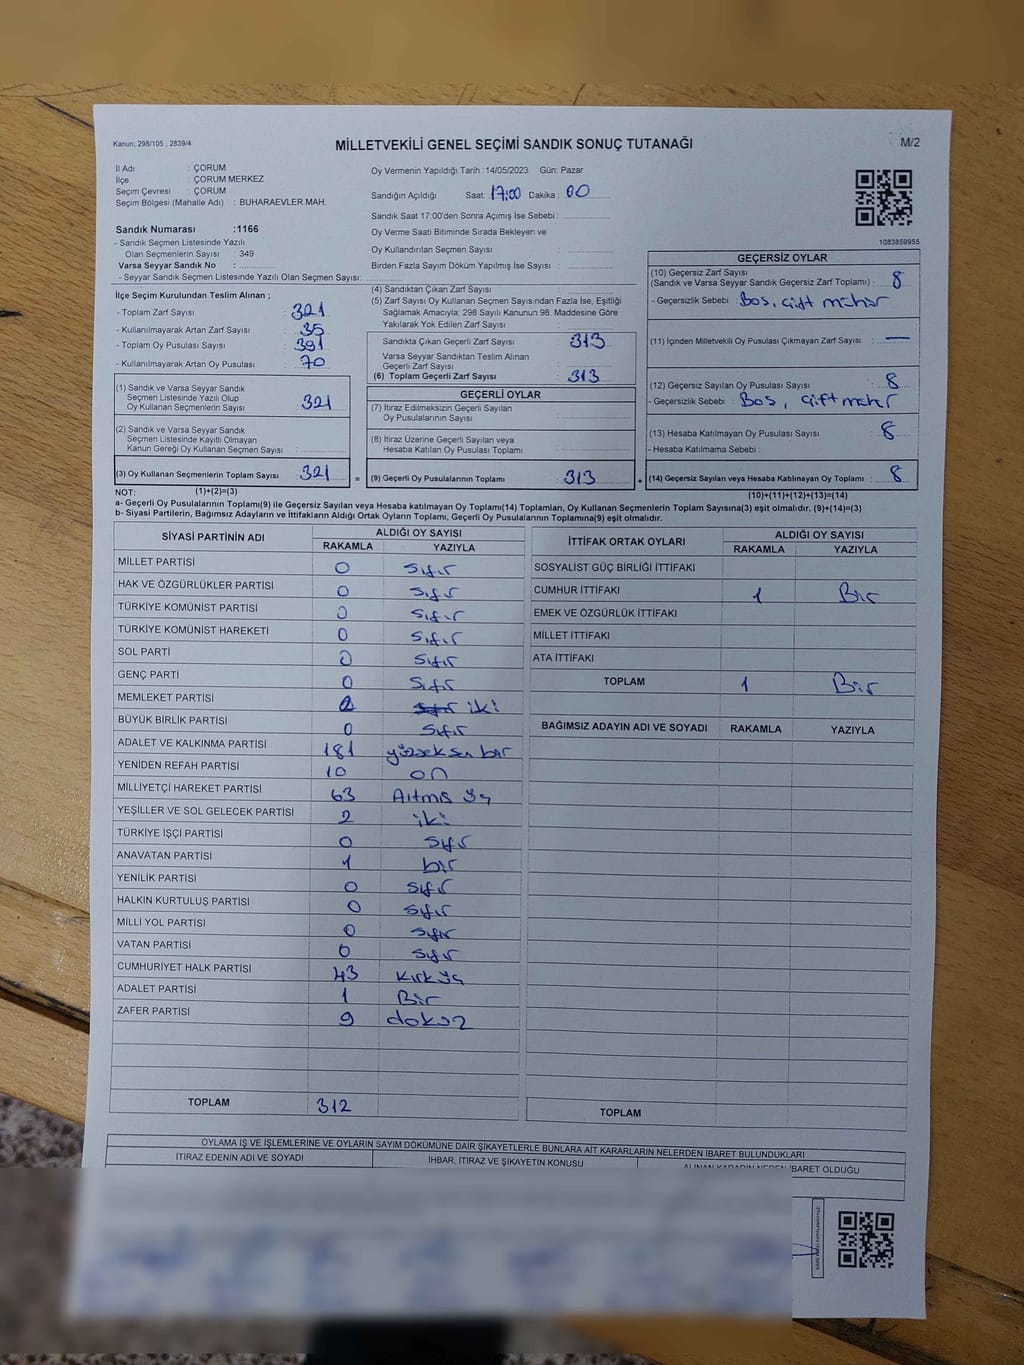 Kanun; 298/105 , 2839/4
MİLLETVEKİLİ GENEL SEÇİMİ SANDIK SONUÇ TUTANAĞI
M/2
İl Adı : ÇORUM
İlçe : ÇORUM MERKEZ
Seçim Çevresi : ÇORUM
Seçim Bölgesi (Mahalle Adı) : BUHARAEVLER MAH.
Oy Vermenin Yapıldığı Tarih :14/05/2023 Gün: Pazar
Sandığın Açıldığı Saat: 17:00 Dakika : 00
Sandık Saat 17:00'den Sonra Açımış İse Sebebi :
Oy Verme Saati Bitiminde Sırada Bekleyen ve
Oy Kullandırılan Seçmen Sayısı :
Birden Fazla Sayım Döküm Yapılmış İse Sayısı :
1083859955
Sandık Numarası :1166
- Sandık Seçmen Listesinde Yazılı
Olan Seçmenlerin Sayısı : 349
Varsa Seyyar Sandık No :
- Seyyar Sandık Seçmen Listesinde Yazılı Olan Seçmen Sayısı:
İlçe Seçim Kurulundan Teslim Alınan ;
- Toplam Zarf Sayısı : 321
- Kullanılmayarak Artan Zarf Sayısı : 35
- Toplam Oy Pusulası Sayısı : 391
- Kullanılmayarak Artan Oy Pusulası : 70
(1) Sandık ve Varsa Seyyar Sandık
Seçmen Listesinde Yazılı Olup
Oy Kullanan Seçmenlerin Sayısı : 321
(2) Sandık ve Varsa Seyyar Sandık
Seçmen Listesinde Kayıtlı Olmayan
Kanun Gereği Oy Kullanan Seçmen Sayısı :
(3) Oy Kullanan Seçmenlerin Toplam Sayısı : 321 =
(1)+(2)=(3)
(4) Sandıktan Çıkan Zarf Sayısı :
(5) Zarf Sayısı Oy Kullanan Seçmen Sayısından Fazla İse, Eşitliği
Sağlamak Amacıyla; 298 Sayılı Kanunun 98. Maddesine Göre
Yakılarak Yok Edilen Zarf Sayısı :
Sandıkta Çıkan Geçerli Zarf Sayısı : 313
Varsa Seyyar Sandıktan Teslim Alınan
Geçerli Zarf Sayısı :
(6) Toplam Geçerli Zarf Sayısı : 313
GEÇERLİ OYLAR
(7) İtiraz Edilmeksizin Geçerli Sayılan
Oy Pusulalarının Sayısı :
(8) İtiraz Üzerine Geçerli Sayılan veya
Hesaba Katılan Oy Pusulası Toplamı :
(9) Geçerli Oy Pusulalarının Toplamı : 313 +
GEÇERSİZ OYLAR
(10) Geçersiz Zarf Sayısı
(Sandık ve Varsa Seyyar Sandık Geçersiz Zarf Toplamı) : 8
- Geçersizlik Sebebi : Bos, çift mühür
(11) İçinden Milletvekili Oy Pusulası Çıkmayan Zarf Sayısı : —
(12) Geçersiz Sayılan Oy Pusulası Sayısı : 8
- Geçersizlik Sebebi : Bos, çift mühür
(13) Hesaba Katılmayan Oy Pusulası Sayısı : 8
- Hesaba Katılmama Sebebi :
(14) Geçersiz Sayılan veya Hesaba Katılmayan Oy Toplamı : 8
(10)+(11)+(12)+(13)=(14)
NOT:
a- Geçerli Oy Pusulalarının Toplamı(9) ile Geçersiz Sayılan veya Hesaba katılmayan Oy Toplamı(14) Toplamları, Oy Kullanan Seçmenlerin Toplam Sayısına(3) eşit olmalıdır. (9)+(14)=(3)
b- Siyasi Partilerin, Bağımsız Adayların ve İttifakların Aldığı Ortak Oyların Toplamı, Geçerli Oy Pusulalarının Toplamına(9) eşit olmalıdır.
SİYASİ PARTİNİN ADI ALDIĞI OY SAYISI
RAKAMLA YAZIYLA
MİLLET PARTİSİ 0 Sıfır
HAK VE ÖZGÜRLÜKLER PARTİSİ 0 Sıfır
TÜRKİYE KOMÜNİST PARTİSİ 0 Sıfır
TÜRKİYE KOMÜNİST HAREKETİ 0 Sıfır
SOL PARTİ 0 Sıfır
GENÇ PARTİ 0 Sıfır
MEMLEKET PARTİSİ 2 iki
BÜYÜK BİRLİK PARTİSİ 0 Sıfır
ADALET VE KALKINMA PARTİSİ 181 yüzseksen bir
YENİDEN REFAH PARTİSİ 10 on
MİLLİYETÇİ HAREKET PARTİSİ 63 Altmış üç
YEŞİLLER VE SOL GELECEK PARTİSİ 2 iki
TÜRKİYE İŞÇİ PARTİSİ 0 Sıfır
ANAVATAN PARTİSİ 1 bir
YENİLİK PARTİSİ 0 Sıfır
HALKIN KURTULUŞ PARTİSİ 0 Sıfır
MİLLİ YOL PARTİSİ 0 Sıfır
VATAN PARTİSİ 0 Sıfır
CUMHURİYET HALK PARTİSİ 43 Kırk üç
ADALET PARTİSİ 1 Bir
ZAFER PARTİSİ 9 dokuz
TOPLAM 312
İTTİFAK ORTAK OYLARI ALDIĞI OY SAYISI
RAKAMLA YAZIYLA
SOSYALİST GÜÇ BİRLİĞİ İTTİFAKI
CUMHUR İTTİFAKI 1 Bir
EMEK VE ÖZGÜRLÜK İTTİFAKI
MİLLET İTTİFAKI
ATA İTTİFAKI
TOPLAM 1 Bir
BAĞIMSIZ ADAYIN ADI VE SOYADI RAKAMLA YAZIYLA
TOPLAM
OYLAMA İŞ VE İŞLEMLERİNE VE OYLARIN SAYIM DÖKÜMÜNE DAİR ŞİKAYETLERLE BUNLARA AİT KARARLARIN NELERDEN İBARET BULUNDUKLARI
İTİRAZ EDENİN ADI VE SOYADI İHBAR, İTİRAZ VE ŞİKAYETİN KONUSU ALINAN KARARIN NEDEN İBARET OLDUĞU